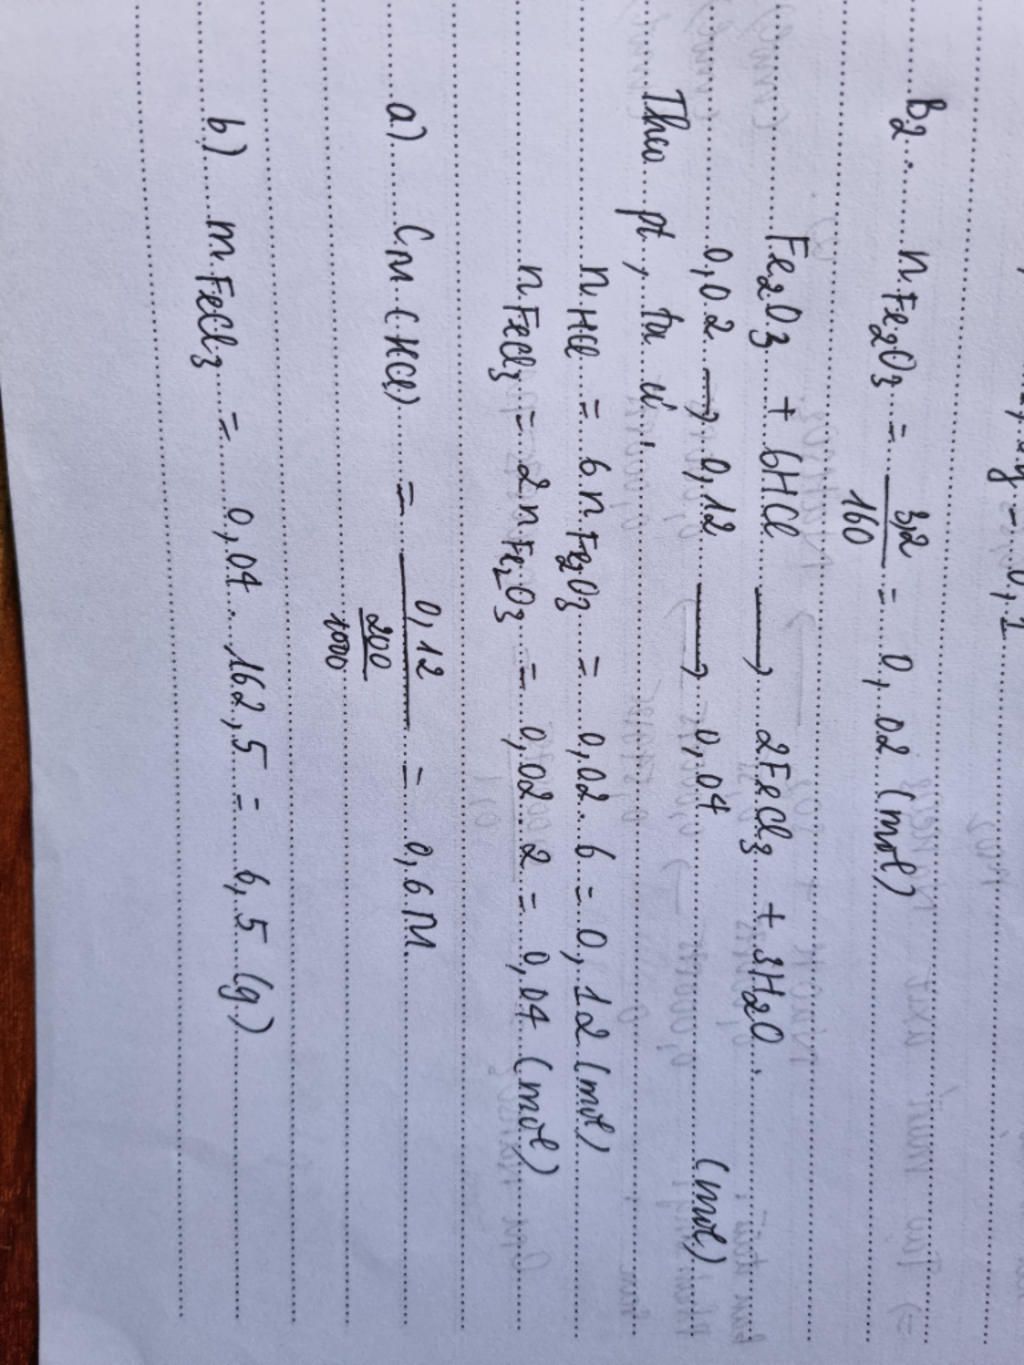 B2. nFe2O3 = 3,2/160 = 0,02 (mol)
Fe2O3 + 6HCl → 2FeCl3 + 3H2O.
0,02 → 0,12 → 0,04 (mol)
Theo pt, ta có:
nHCl = 6nFe2O3 = 0,02.6 = 0,12 (mol)
nFeCl3 = 2nFe2O3 = 0,02.2 = 0,04 (mol)
a) CM (HCl) = 0,12/(200/1000) = 0,6M.
b) mFeCl3 = 0,04.162,5 = 6,5 (g)